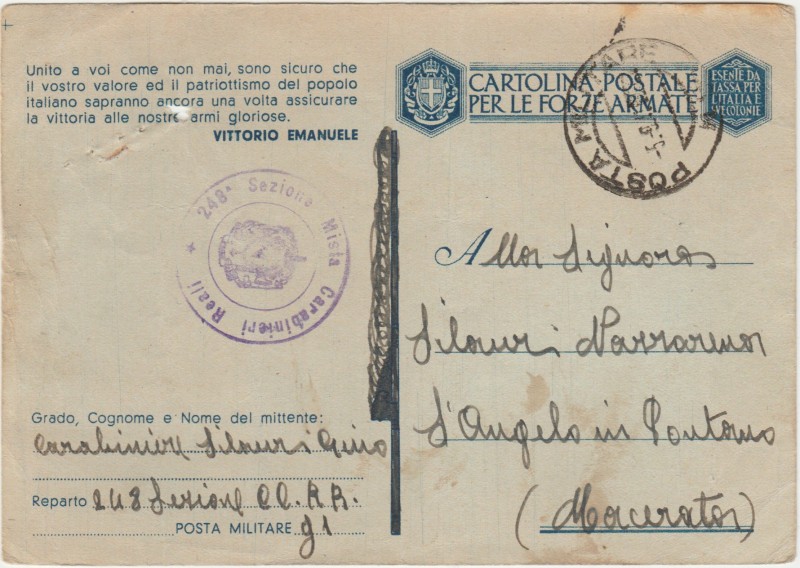 Unito a voi come non mai, sono sicuro che
il vostro valore ed il patriottismo del popolo
italiano sapranno ancora una volta assicurare
la vittoria alle nostre armi gloriose.
VITTORIO EMANUELE
CARTOLINA POSTALE
PER LE FORZE ARMATE
ESENTE DA
TASSA PER
L'ITALIA E
POSTA MILITARE
* 248ª Sezione Mista Carabinieri Reali
Alla Signora
Silauri Nazzarena
S'Angelo in Pontano
(Macerata)
Grado, Cognome e Nome del mittente:
Carabiniere Silauri Gino
Reparto 248 Sezione CC.RR.
POSTA MILITARE 91